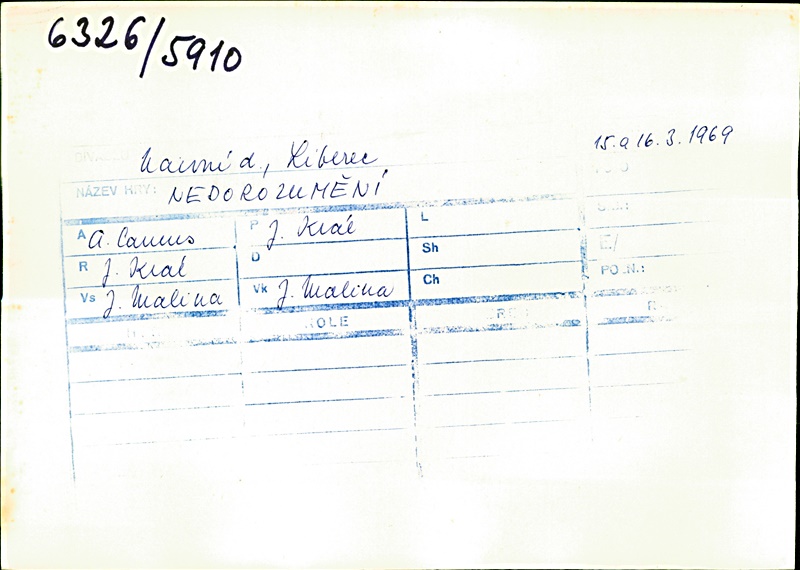 6326/5910
15. a 16. 3. 1969
Naivní d., Liberec
NÁZEV HRY: NEDOROZUMĚNÍ
A A. Camus P J. Král L
R J. Král D Sh
Vs J. Malina Vk J. Malina Ch
PO.N.:
OLE